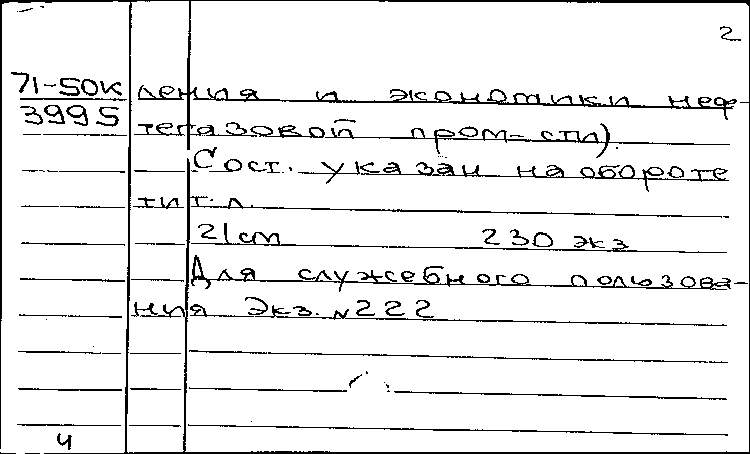 2
71-50к ления и экономики неф-
3995 тегазовой пром-сти).
Сост. указан на обороте
тит. л.
21cm 230 экз
Для служебного пользова-
ния Экз. №222
4